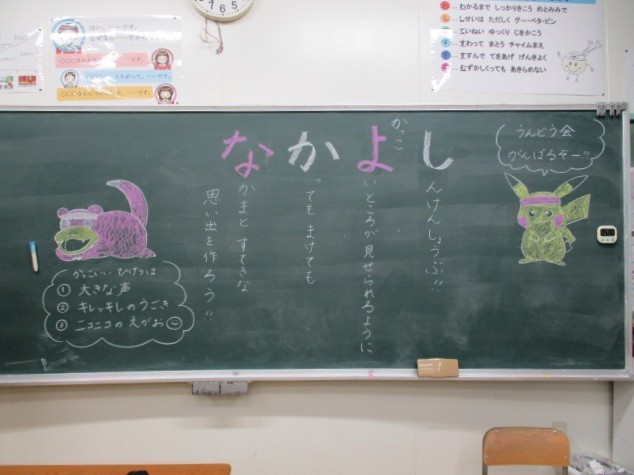 し んけんしょうぶ!!
かっこ
よ いところが見せられるように
か っても まけても
な かまと すてきな
思い出を作ろう!!
うんどう会
がんばるぞー!!
かっこいい ひけつは
① 大きな声
② キレッキレのうごき
③ ニコニコの えがお
わかるまで しっかりきこう めとみみで
しせいは ただしく グー・ペタ・ピン
ていねい ゆっくり じをかこう
すわって まとう チャイムまえ
すすんで てをあげ げんきよく
むずかしくっても あきらめない